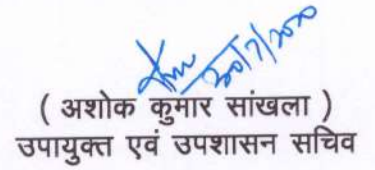 30/7/2020
( अशोक कुमार सांखला )
उपायुक्त एवं उपशासन सचिव